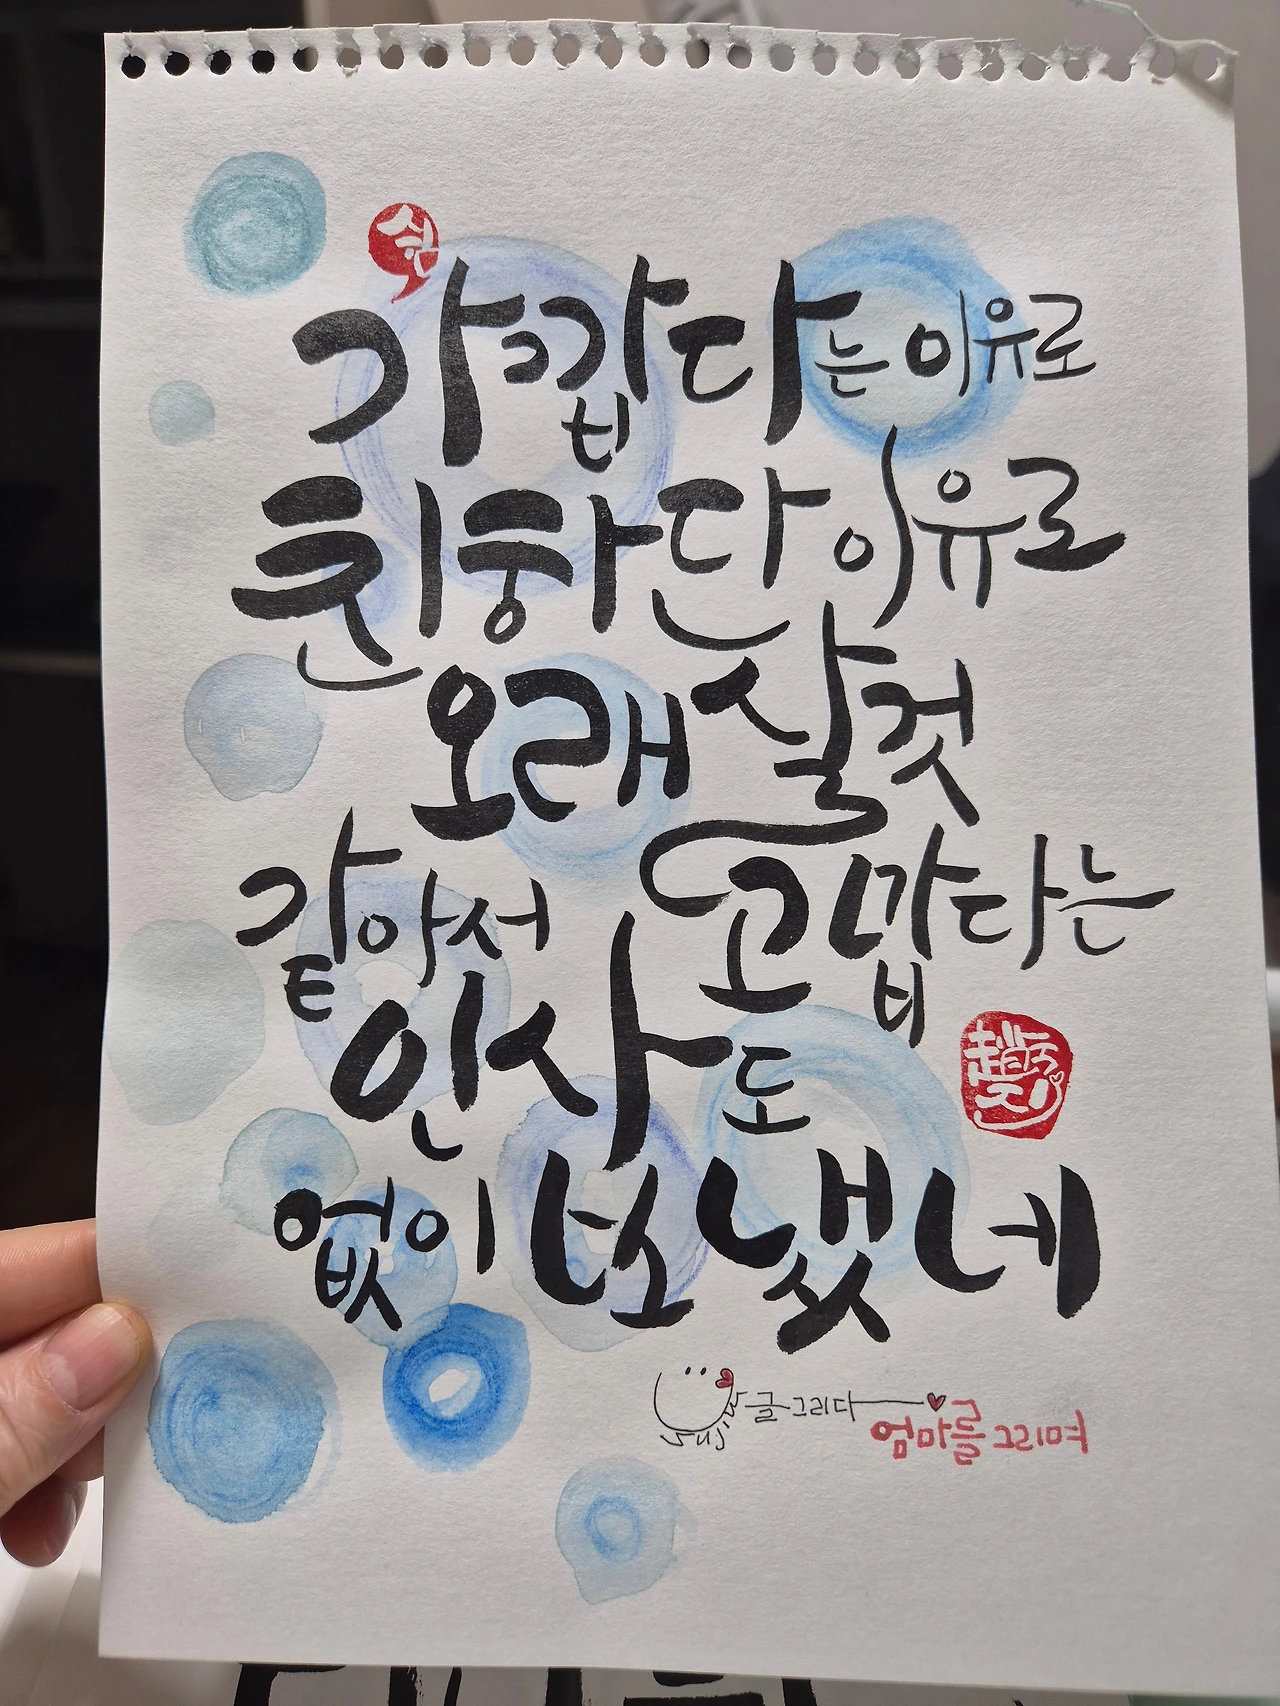 가깝다는 이유로
친하단 이유로
오래 살 것
같아서 고맙다는
인사도
없이 보냈네
글그리다
엄마를 그리며